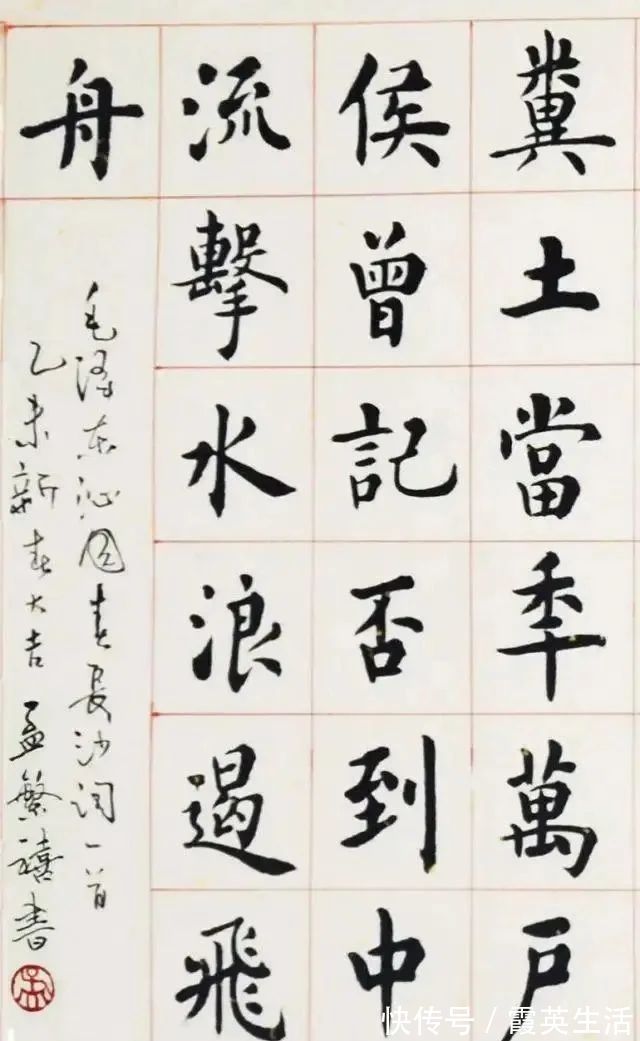 糞土當年萬户
侯曾記否到中
流擊水浪遏飛
舟
毛泽东沁园春长沙词一首
乙未新春大吉 孟繁禧书
孟
快传号/霞英生活